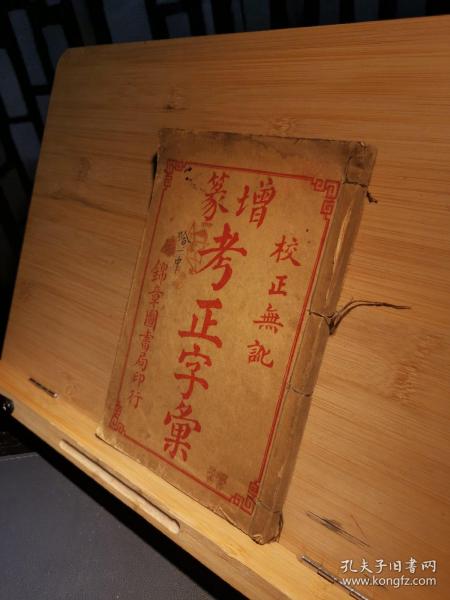 增篆
校正無訛
考正字彙
錦章圖書局印行
孔夫子旧书网
www.kongfz.com